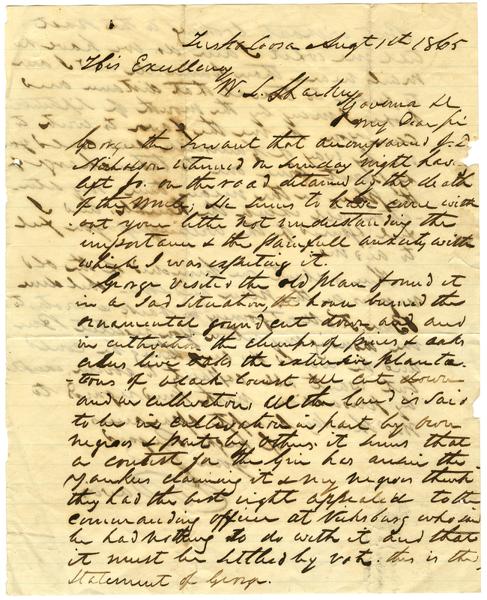 Tuskaloosa Augt 1st 1865
His Excellency
W. L. Sharkey
Governor &c
My Dear Sir
George the Servant that accompanied J. D.
Nicholson returned on Sunday night having
left Jr. on the road detained by the death
of the Mule; he seems to have come with
out your letter not understanding the
importance & the painfull anxiety with
which I was expecting it.
George visited the old place found it
in a sad situation, the house burned the
ornamental ground cut down and and
in cultivation the clumps of pines & oaks
also live oaks the extensive planta-
-tions of a each forest all cut down
and in cultivation, All the land is said
to be in cultivation in part by own
negroes & part by others. it seems that
a contest for the Gin has arisen the
Yankees claiming it & my negroes think
they had the best right appealed to the
commanding officer at Vicksburg who said
he had nothing to do with it and that
it must be settled by vote. this is the
Statement of George.